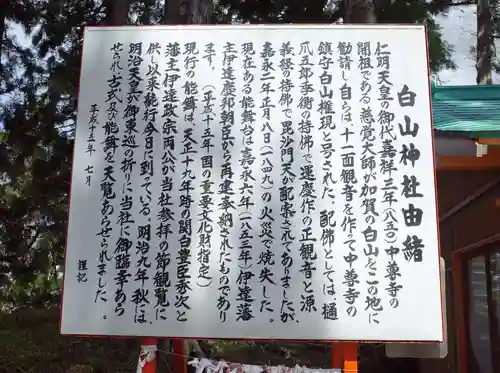 白山神社由緒
仁明天皇の御代嘉祥三年(八五〇)中尊寺の
開祖である慈覚大師が加賀の白山をこの地に
勧請し自らは十一面観音を作って中尊寺の
鎮守白山権現と号された。配佛としては、樋
爪五郎季衡の持佛で運慶作の正観音と源
義経の持佛で毘沙門天が配案されてありましたが
嘉永二年正月八日(一八四九)の火災で焼失した。
現在ある能舞台は嘉永六年(一八五三年)伊達藩
主伊達慶邦朝臣から再建奉納されたものであり
ます。(平成十五年 国の重要文化財指定)
現行の能舞は、天正十九年時の関白豊臣秀次と
藩主伊達政宗両公が当社参拝の節観覧に
供し以来継行今日に到っている、明治九年秋には、
明治天皇が御東巡の折りに当社に御臨幸あら
せられ古式及び能舞を天覧あらせられました。
平成十五年 七月
謹記